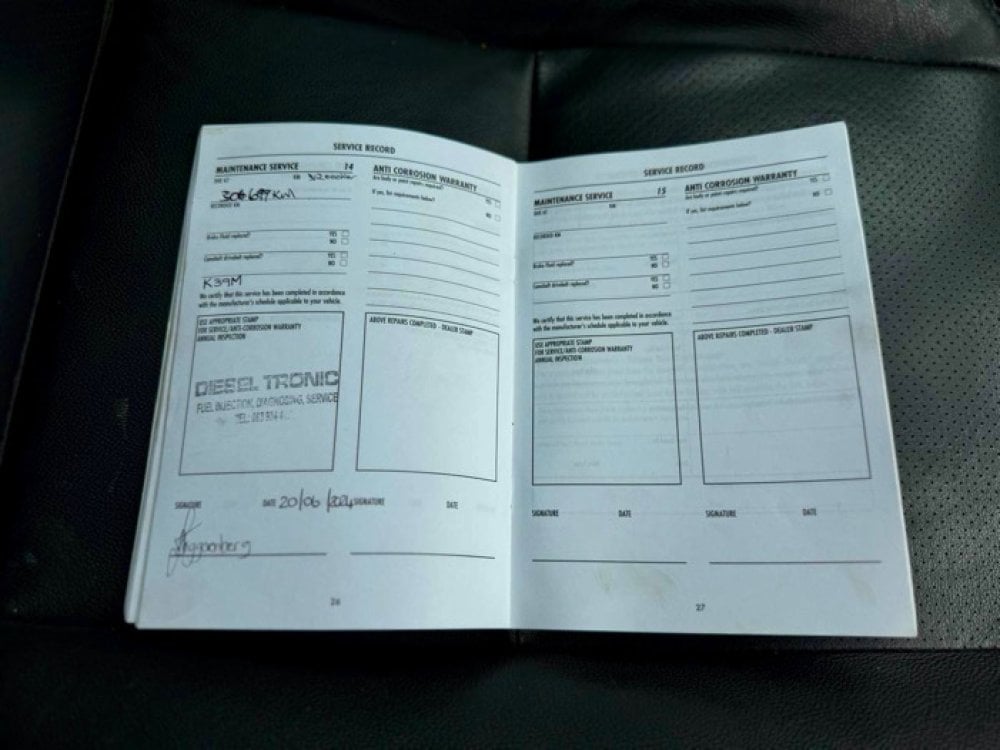 SERVICE RECORD
MAINTENANCE SERVICE 14
DUE AT KM
306.697 KM
RECORDED KM
Brake Fluid replaced? YES
NO
YES
NO
K39M
We certify that this service has been completed in accordance
with the manufacturer's schedule applicable to your vehicle.
USE APPROPRIATE STAMP
FOR SERVICE/ANTI-CORROSION WARRANTY
ANNUAL INSPECTION
DIESEL TRONIC
FUEL INJECTION, DIAGNOSING, SERVICE
TEL:
SIGNATURE DATE 20/06/2024
ANTI CORROSION WARRANTY
Are body or paint repairs required? YES
If yes, list requirements below? NO
ABOVE REPAIRS COMPLETED - DEALER STAMP
SIGNATURE DATE
26
SERVICE RECORD
MAINTENANCE SERVICE 15
DUE AT KM
RECORDED KM
Brake Fluid replaced? YES
NO
YES
NO
We certify that this service has been completed in accordance
with the manufacturer's schedule applicable to your vehicle.
USE APPROPRIATE STAMP
FOR SERVICE/ANTI-CORROSION WARRANTY
ANNUAL INSPECTION
SIGNATURE DATE
ANTI CORROSION WARRANTY
Are body or paint repairs required? YES
If yes, list requirements below? NO
ABOVE REPAIRS COMPLETED - DEALER STAMP
SIGNATURE DATE
27